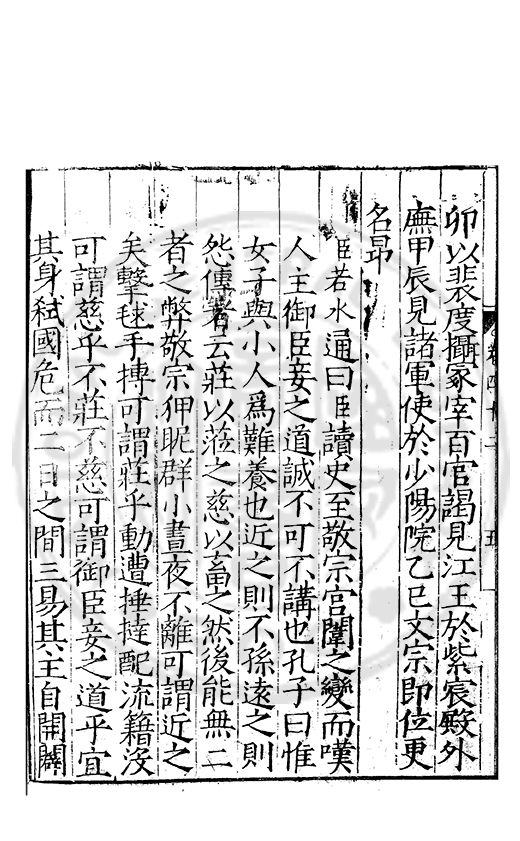 卯以裴度攝冢宰百官謁見江王於紫宸殿外
廡甲辰見諸軍使於少陽院乙巳文宗即位更
名昻
臣若水通曰臣讀史至敬宗宫闈之變而嘆
人主御臣妾之道誠不可不講也孔子曰惟
女子與小人爲難養也近之則不孫遠之則
怨傳者云莊以蒞之慈以畜之然後能無二
者之弊敬宗狎昵群小晝夜不離可謂近之
矣擊毬手搏可謂莊乎動遭捶撻配流籍沒
可謂慈乎不莊不慈可謂御臣妾之道乎宜
其身弑國危而二日之間三易其主自開闢